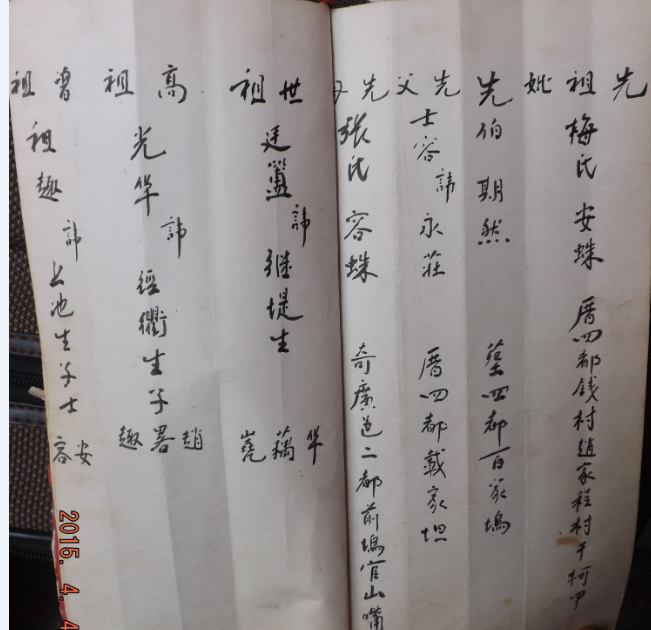 先祖妣
梅氏 安蛛 厝四都錢村趙家程村干柯甲
先伯期然 塟四都百家塢
先父
士容 諱永莊 厝四都載家坦
先
張氏 容蛛 奇廣邑二都前塢官山嘴
世祖
廷簋 諱继堤生
华藕
高祖
光华 諱經衢生子
趙署趣
曾祖
祖趣 諱上池生子士
安容
2015. 4. 4